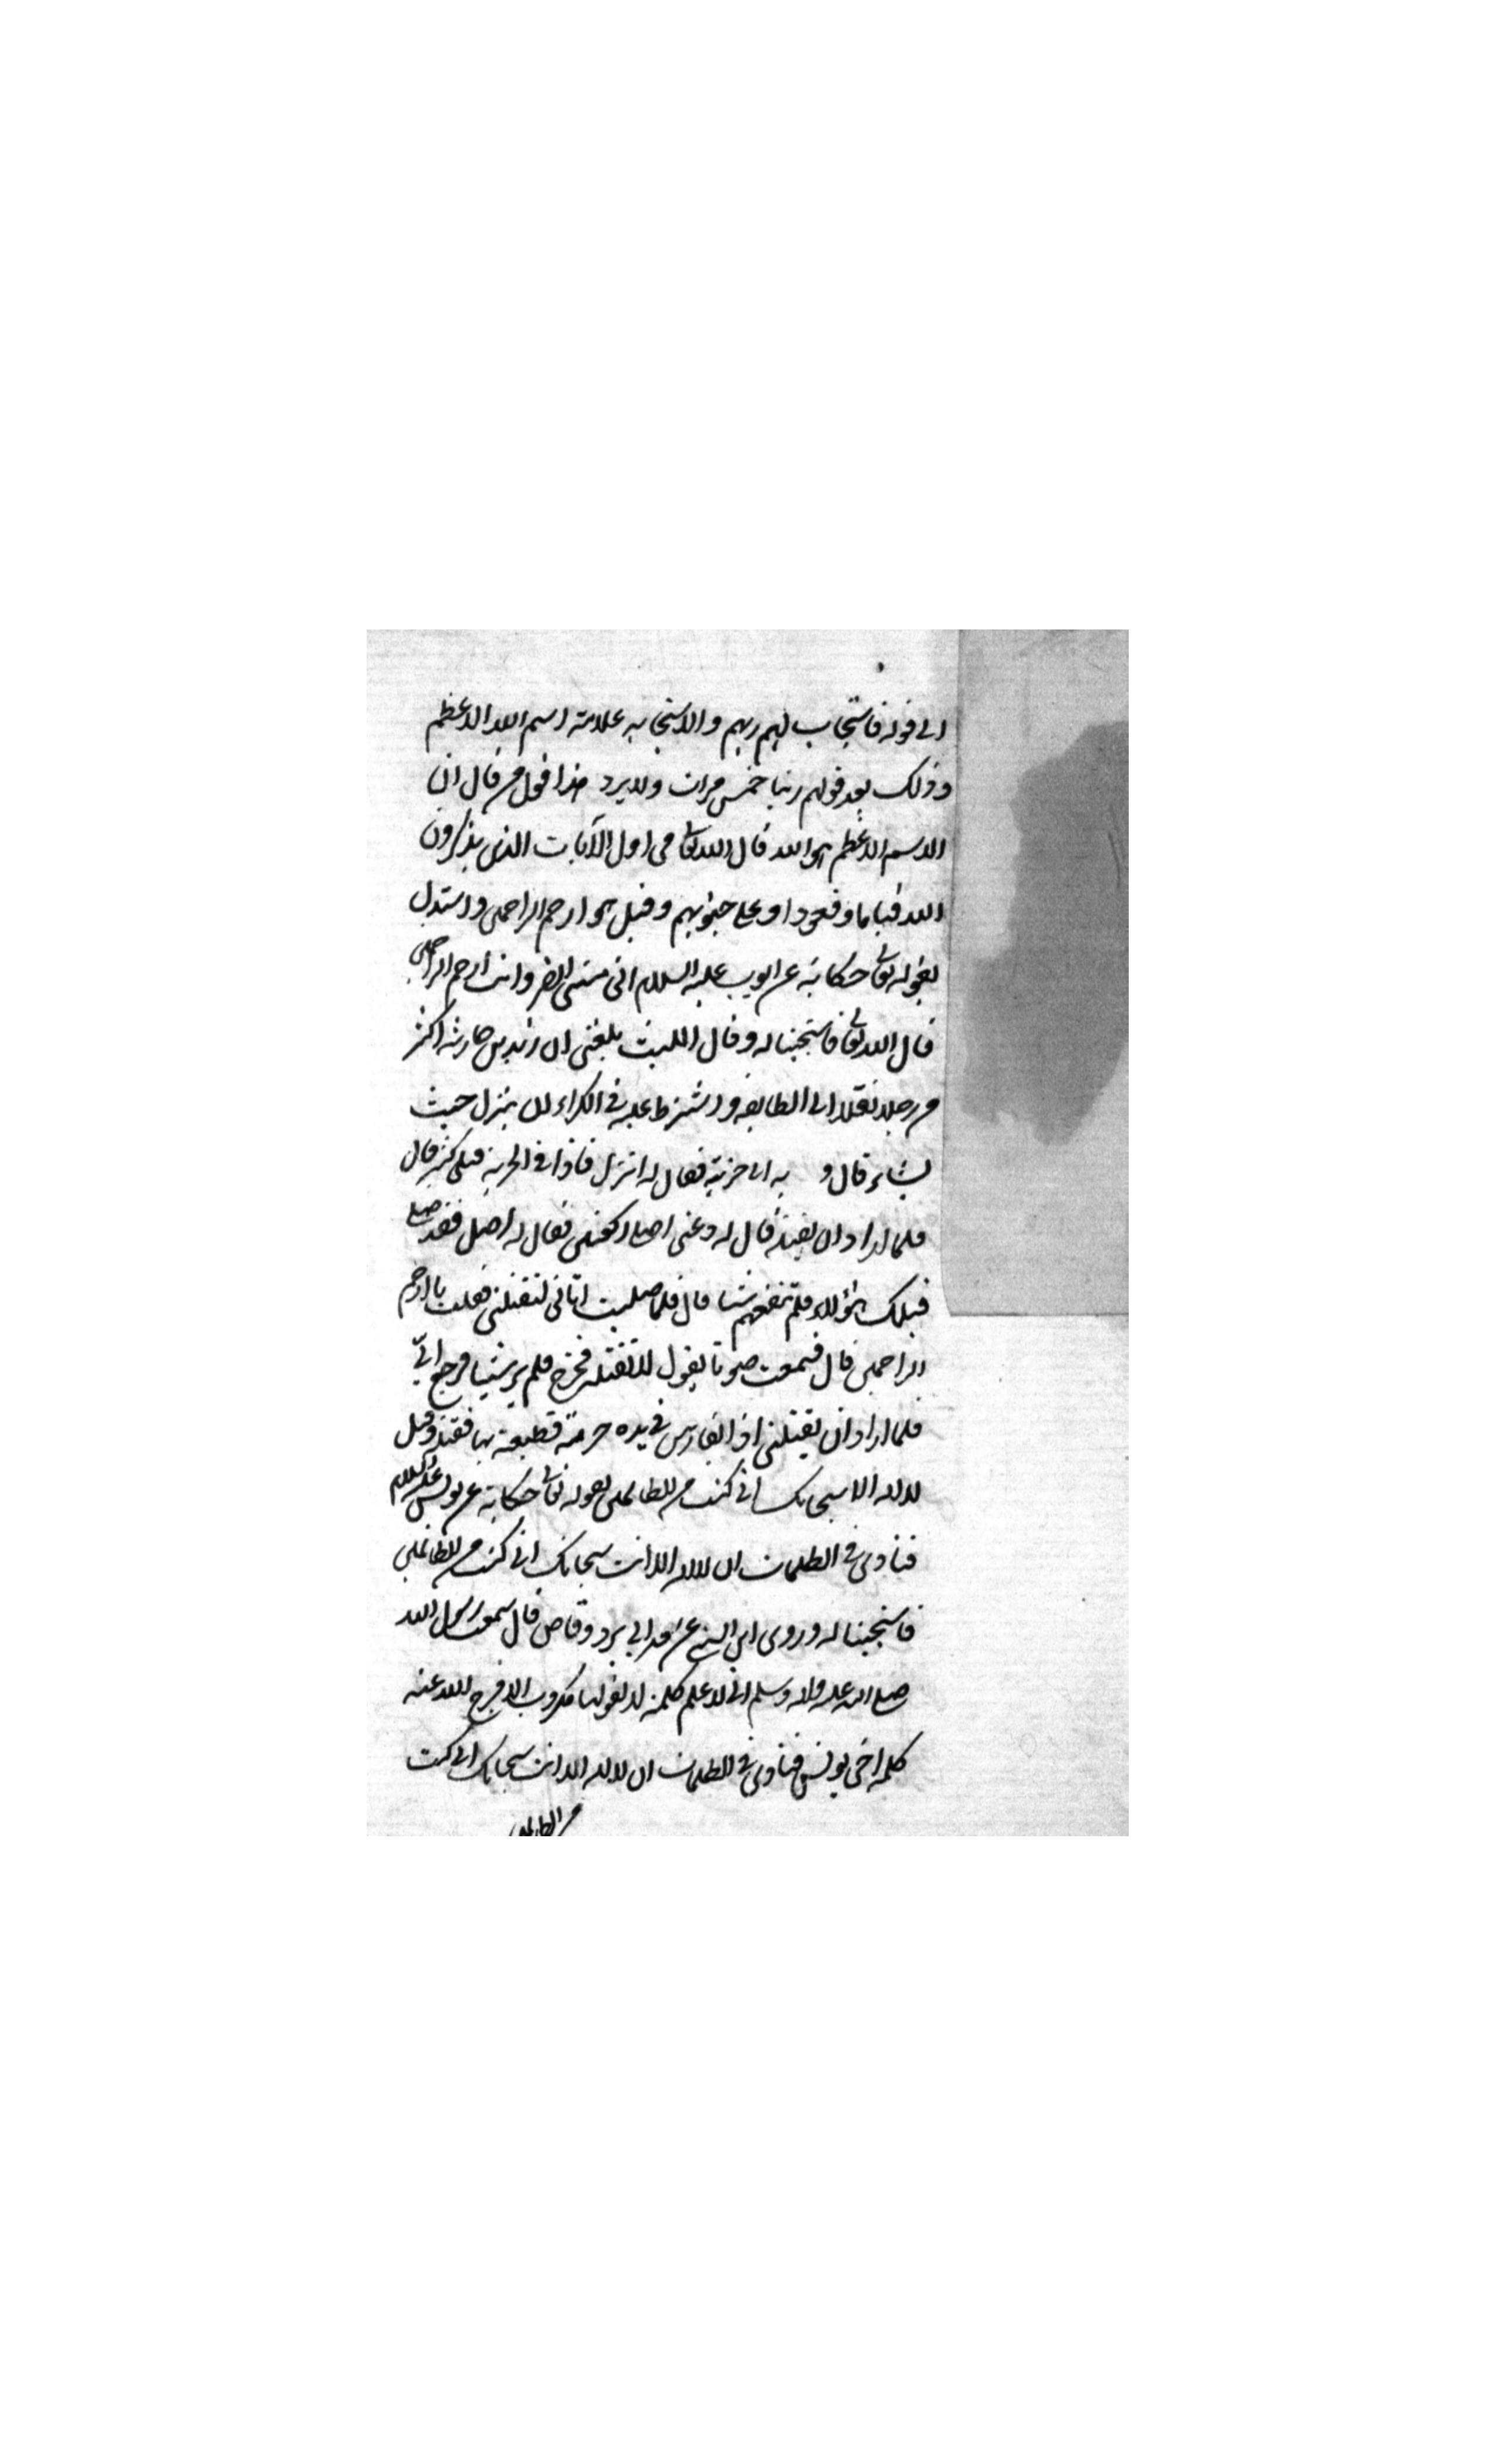 الى قوله فاستجاب لهم ربهم والاستجابه علامة اسم الله الاعظم
وذلك بعد قولهم ربنا خمس مرات ولا يرد هذا قول من قال ان
الاسم الاعظم هو الله قال الله تعالى في اول الآيات الذين يذكرون
الله قياما وقعودا وعلى جنوبهم وقيل هو ارحم الراحمين واستدل
بقوله تعالى حكاية عن ايوب عليه السلام اني مسني الضر وانت ارحم الراحمين
قال الله تعالى فاستجبنا له وقال الليث بلغني ان زيد بن حارثه اكترى
من رجل بغلا الى الطايف واشترط عليه في الكراء ان ينزل حيث
يشاء قال و به الى خربة فقال له انزل فاذا في الخربة قتلى كثير قال
فلما اراد ان يقتله قال له دعني اصلي ركعتين فقال له اصل فقد صلى
قبلك هؤلاء فلم تنفعهم شيا قال فلما صليت اتاني لتقتلني فقلت يا ارحم
الراحمين قال فسمعت صوتا يقول لا تقتله فخرج فلم ير شيئا فرجع الي
فلما اراد ان يقتلني اذا بفارس في يده حربة فطعنه بها فقتله وقيل
لا اله الا سبحانك اني كنت من الظالمين لقوله تعالى حكاية عن يونس عليه السلام
فنادى في الظلمات ان لا اله الا انت سبحانك اني كنت من الظالمين
فاستجبنا له وروى ابن السني عن وقاص قال سمعت رسول الله
صلى الله عليه واله وسلم اني لاعلم كلمة لا يقولها مكروب الا فرج الله عنه
كلمة اخي يونس فنادى في الظلمات ان لا اله الا انت سبحانك اني كنت
من الظالمين